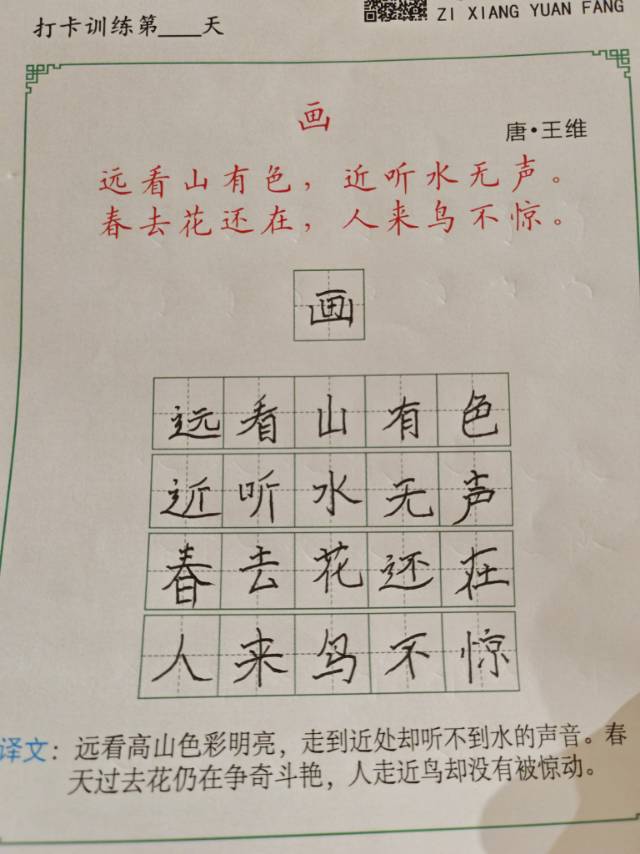 ZI XIANG YUAN FANG
打卡训练第____天
画
唐·王维
远看山有色，近听水无声。
春去花还在，人来鸟不惊。
画
远看山有色
近听水无声
春去花还在
人来鸟不惊
译文：远看高山色彩明亮，走到近处却听不到水的声音。春
天过去花仍在争奇斗艳，人走近鸟却没有被惊动。